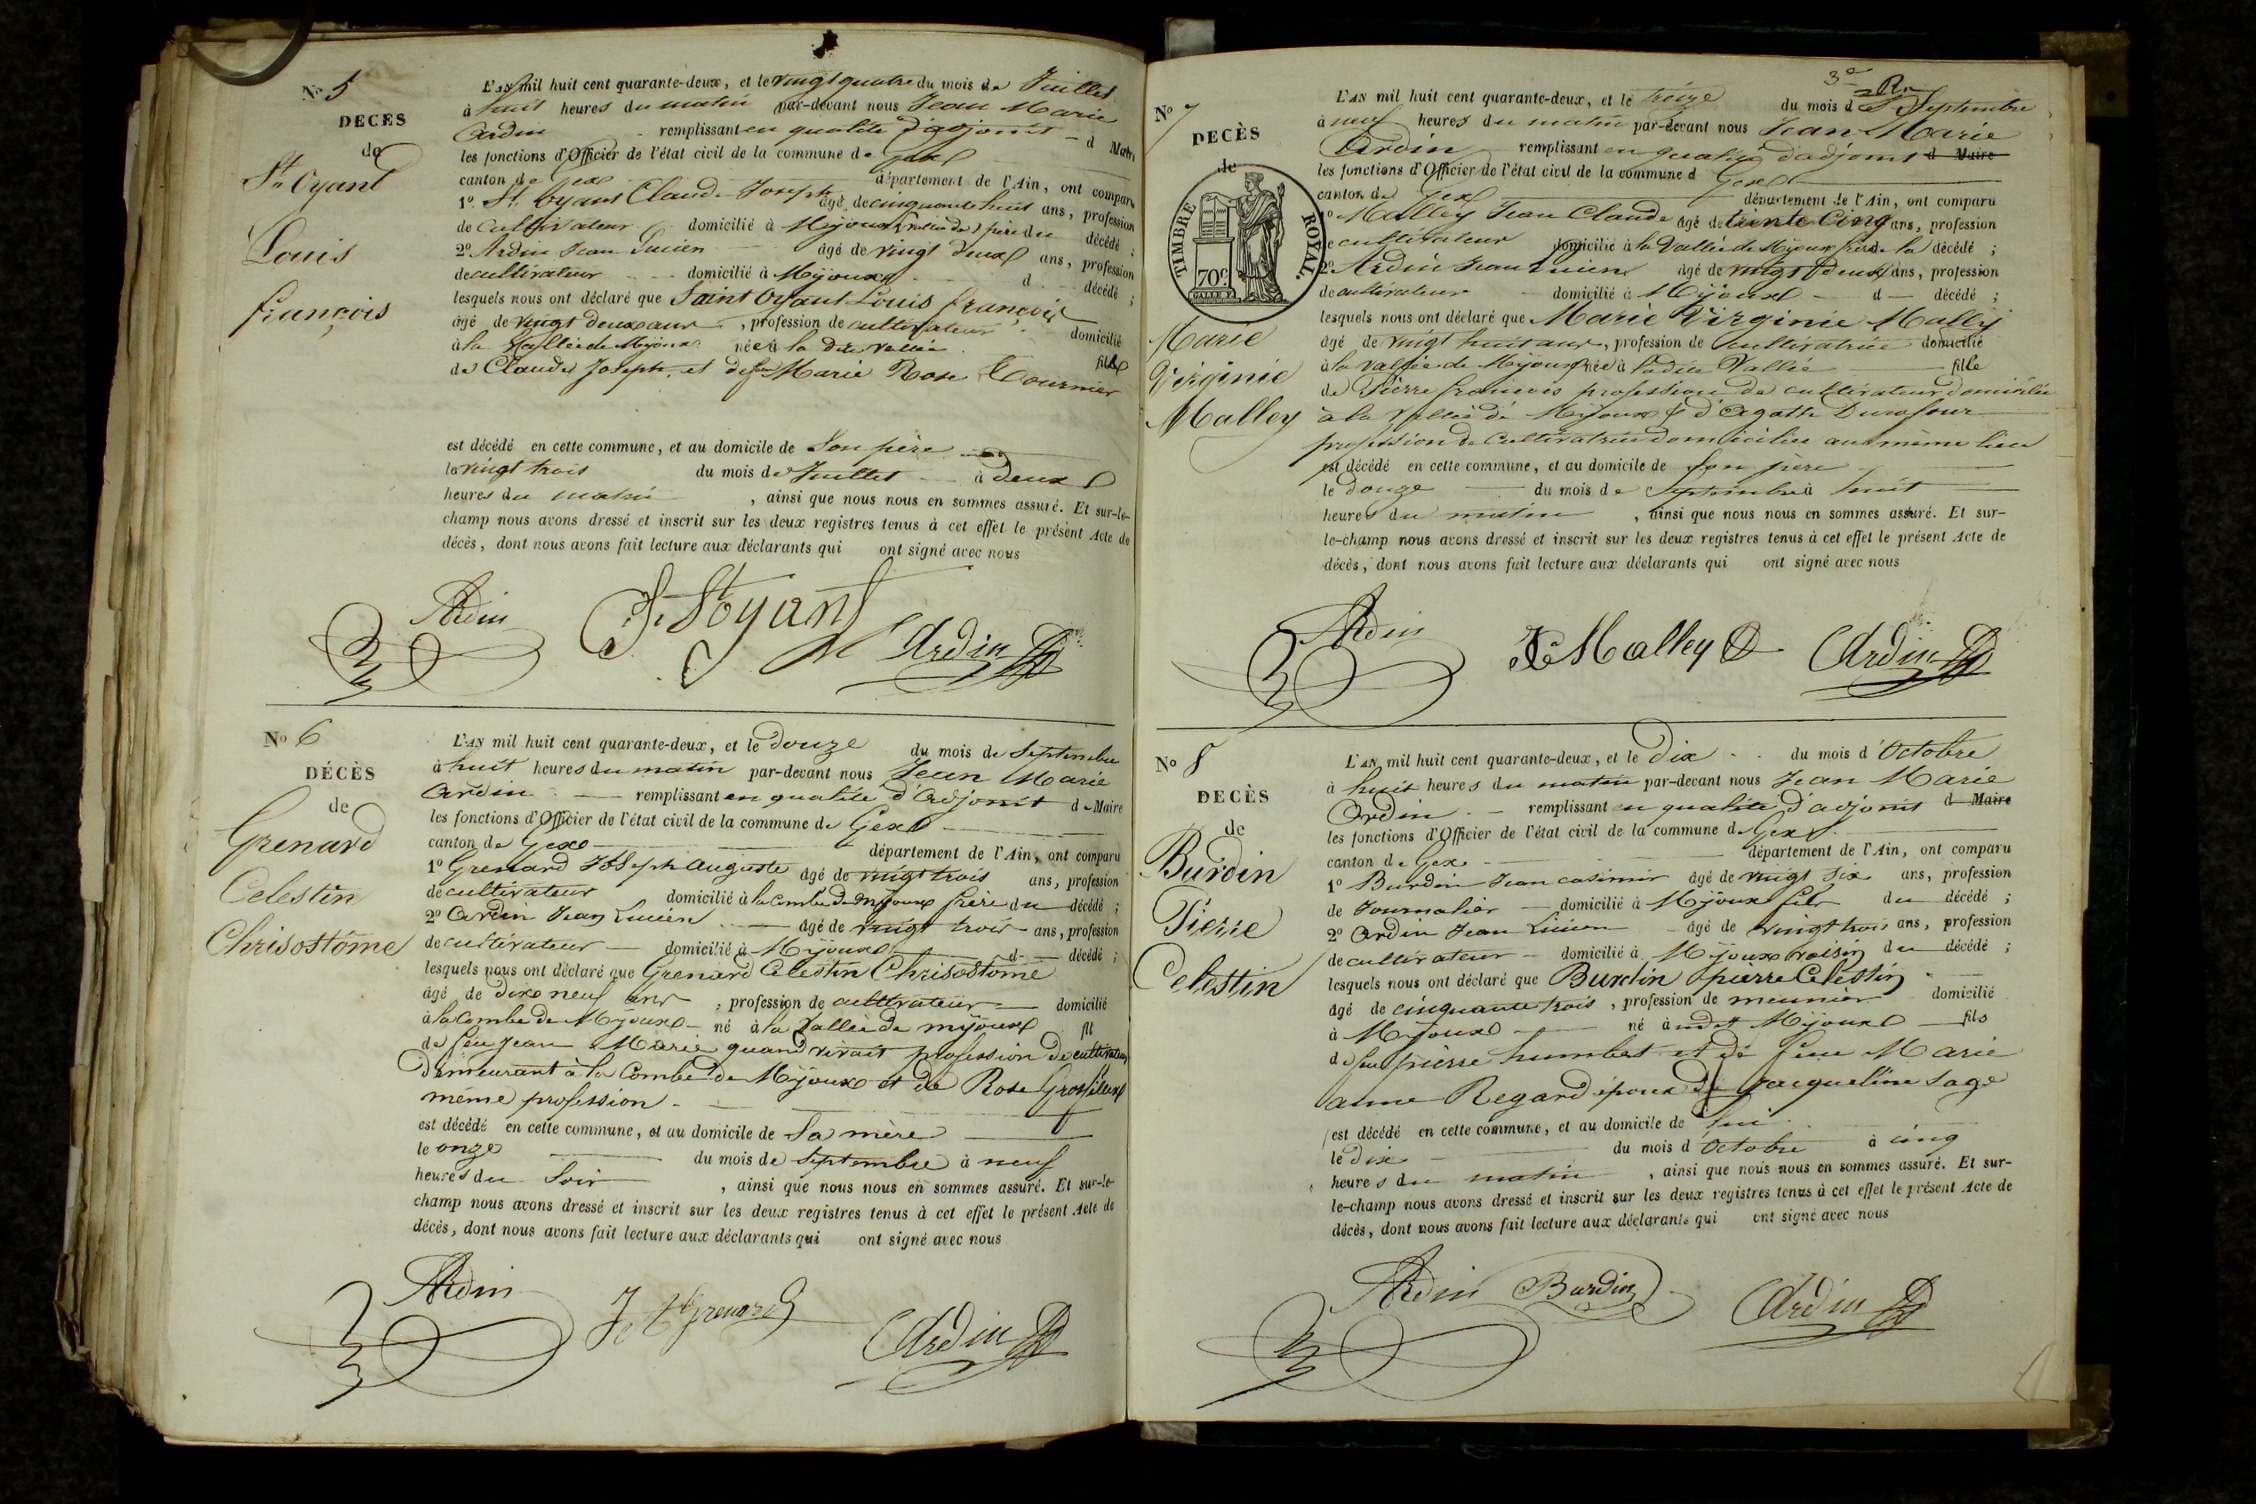 N° 5
DECÈS
de
St Oyant
Louis
françois
L'AN mil huit cent quarante-deux, et le vingt quatre du mois de Juillet
à huit heures du matin par-devant nous Jean Marie
Ardin remplissant en qualité d'adjoint d Maire
les fonctions d'Officier de l'état civil de la commune de Gex
canton de Gex département de l'Ain, ont comparu
1° St Oyant Claude Joseph âgé de cinquante huit ans, profession
de cultivateur domicilié à Mijoux père du décédé ;
2° Ardin Jean Lucien âgé de vingt deux ans, profession
de cultivateur domicilié à Mijoux d décédé ;
lesquels nous ont déclaré que Saint Oyant Louis françois
âgé de vingt deux ans, profession de cultivateur domicilié
à la Vallée de Mijoux né à la dite Vallée fils
de Claude Joseph et de Marie Rose Tournier
est décédé en cette commune, et au domicile de Son père
le vingt trois du mois de Juillet à deux
heures du matin, ainsi que nous nous en sommes assuré. Et sur-le-
champ nous avons dressé et inscrit sur les deux registres tenus à cet effet le présent Acte de
décès, dont nous avons fait lecture aux déclarants qui ont signé avec nous
Ardin St Oyant Ardin
N° 6
DÉCÈS
de
Grenard
Celestin
Chrisostôme
L'AN mil huit cent quarante-deux, et le douze du mois de Septembre
à huit heures du matin par-devant nous Jean Marie
Ardin remplissant en qualité d'Adjoint d Maire
les fonctions d'Officier de l'état civil de la commune de Gex
canton de Gex département de l'Ain, ont comparu
1° Grenard Joseph Auguste âgé de vingt trois ans, profession
de cultivateur domicilié à la Combe de Mijoux frère du décédé ;
2° Ardin Jean Lucien âgé de vingt trois ans, profession
de cultivateur domicilié à Mijoux d décédé ;
lesquels nous ont déclaré que Grenard Celestin Chrisostome
âgé de dix neuf ans, profession de cultivateur domicilié
à la Combe de Mijoux né à la Vallée de mijoux fil
de feu Jean Marie quand vivait profession de cultivateur
demeurant à la Combe de Mijoux et de Rose Grosfilex
même profession
est décédé en cette commune, et au domicile de Sa mère
le onze du mois de Septembre à neuf
heures du Soir, ainsi que nous nous en sommes assuré. Et sur-le-
champ nous avons dressé et inscrit sur les deux registres tenus à cet effet le présent Acte de
décès, dont nous avons fait lecture aux déclarants qui ont signé avec nous
Ardin Grenard Ardin
3e
N° 7
DECÈS
de
TIMBRE ROYAL.
70c.
Marie
Virginie
Malley
L'AN mil huit cent quarante-deux, et le treize du mois d Septembre
à neuf heures du matin par-devant nous Jean Marie
Ardin remplissant en qualité d'adjoint d Maire
les fonctions d'Officier de l'état civil de la commune d Gex
canton de Gex département de l'Ain, ont comparu
1° Malley Jean Claude âgé de trente Cinq ans, profession
de cultivateur domicilié à la Vallée de Mijoux frère de la décédé ;
2° Ardin Jean Lucien âgé de vingt deux ans, profession
de cultivateur domicilié à Mijoux d décédé ;
lesquels nous ont déclaré que Marie Virginie Mally
âgé de vingt huit ans, profession de cultivatrice domicilié
à la vallée de Mijoux née à ladite Vallée fille
de Pierre françois profession de cultivateur domicilié
à la Vallée de Mijoux & d'Agathe Durafour
profession de Cultivatrice domiciliée au même lieu
est décédé en cette commune, et au domicile de Son père
le douze du mois de Septembre à huit
heures du matin, ainsi que nous nous en sommes assuré. Et sur-
le-champ nous avons dressé et inscrit sur les deux registres tenus à cet effet le présent Acte de
décès, dont nous avons fait lecture aux déclarants qui ont signé avec nous
Ardin JC Malley Ardin
N° 8
DECÈS
de
Burdin
Pierre
Celestin
L'AN mil huit cent quarante-deux, et le Dix du mois d'Octobre
à huit heures du matin par-devant nous Jean Marie
Ardin remplissant en qualité d'adjoint d Maire
les fonctions d'Officier de l'état civil de la commune de Gex
canton de Gex département de l'Ain, ont comparu
1° Burdin Jean casimir âgé de vingt Six ans, profession
de Journalier domicilié à Mijoux fils du décédé ;
2° Ardin Jean Lucien âgé de vingt trois ans, profession
de cultivateur domicilié à Mijoux voisin du décédé ;
lesquels nous ont déclaré que Burdin pierre Celestin
âgé de cinquante trois, profession de meunier domicilié
à Mijoux né à Mijoux fils
de feu pierre humbert et de feue Marie
anne Regard époux de Jacqueline Sage
est décédé en cette commune, et au domicile de lui
le dix du mois d'Octobre à cinq
heures du matin, ainsi que nous nous en sommes assuré. Et sur-
le-champ nous avons dressé et inscrit sur les deux registres tenus à cet effet le présent Acte de
décès, dont nous avons fait lecture aux déclarants qui ont signé avec nous
Ardin Burdin Ardin